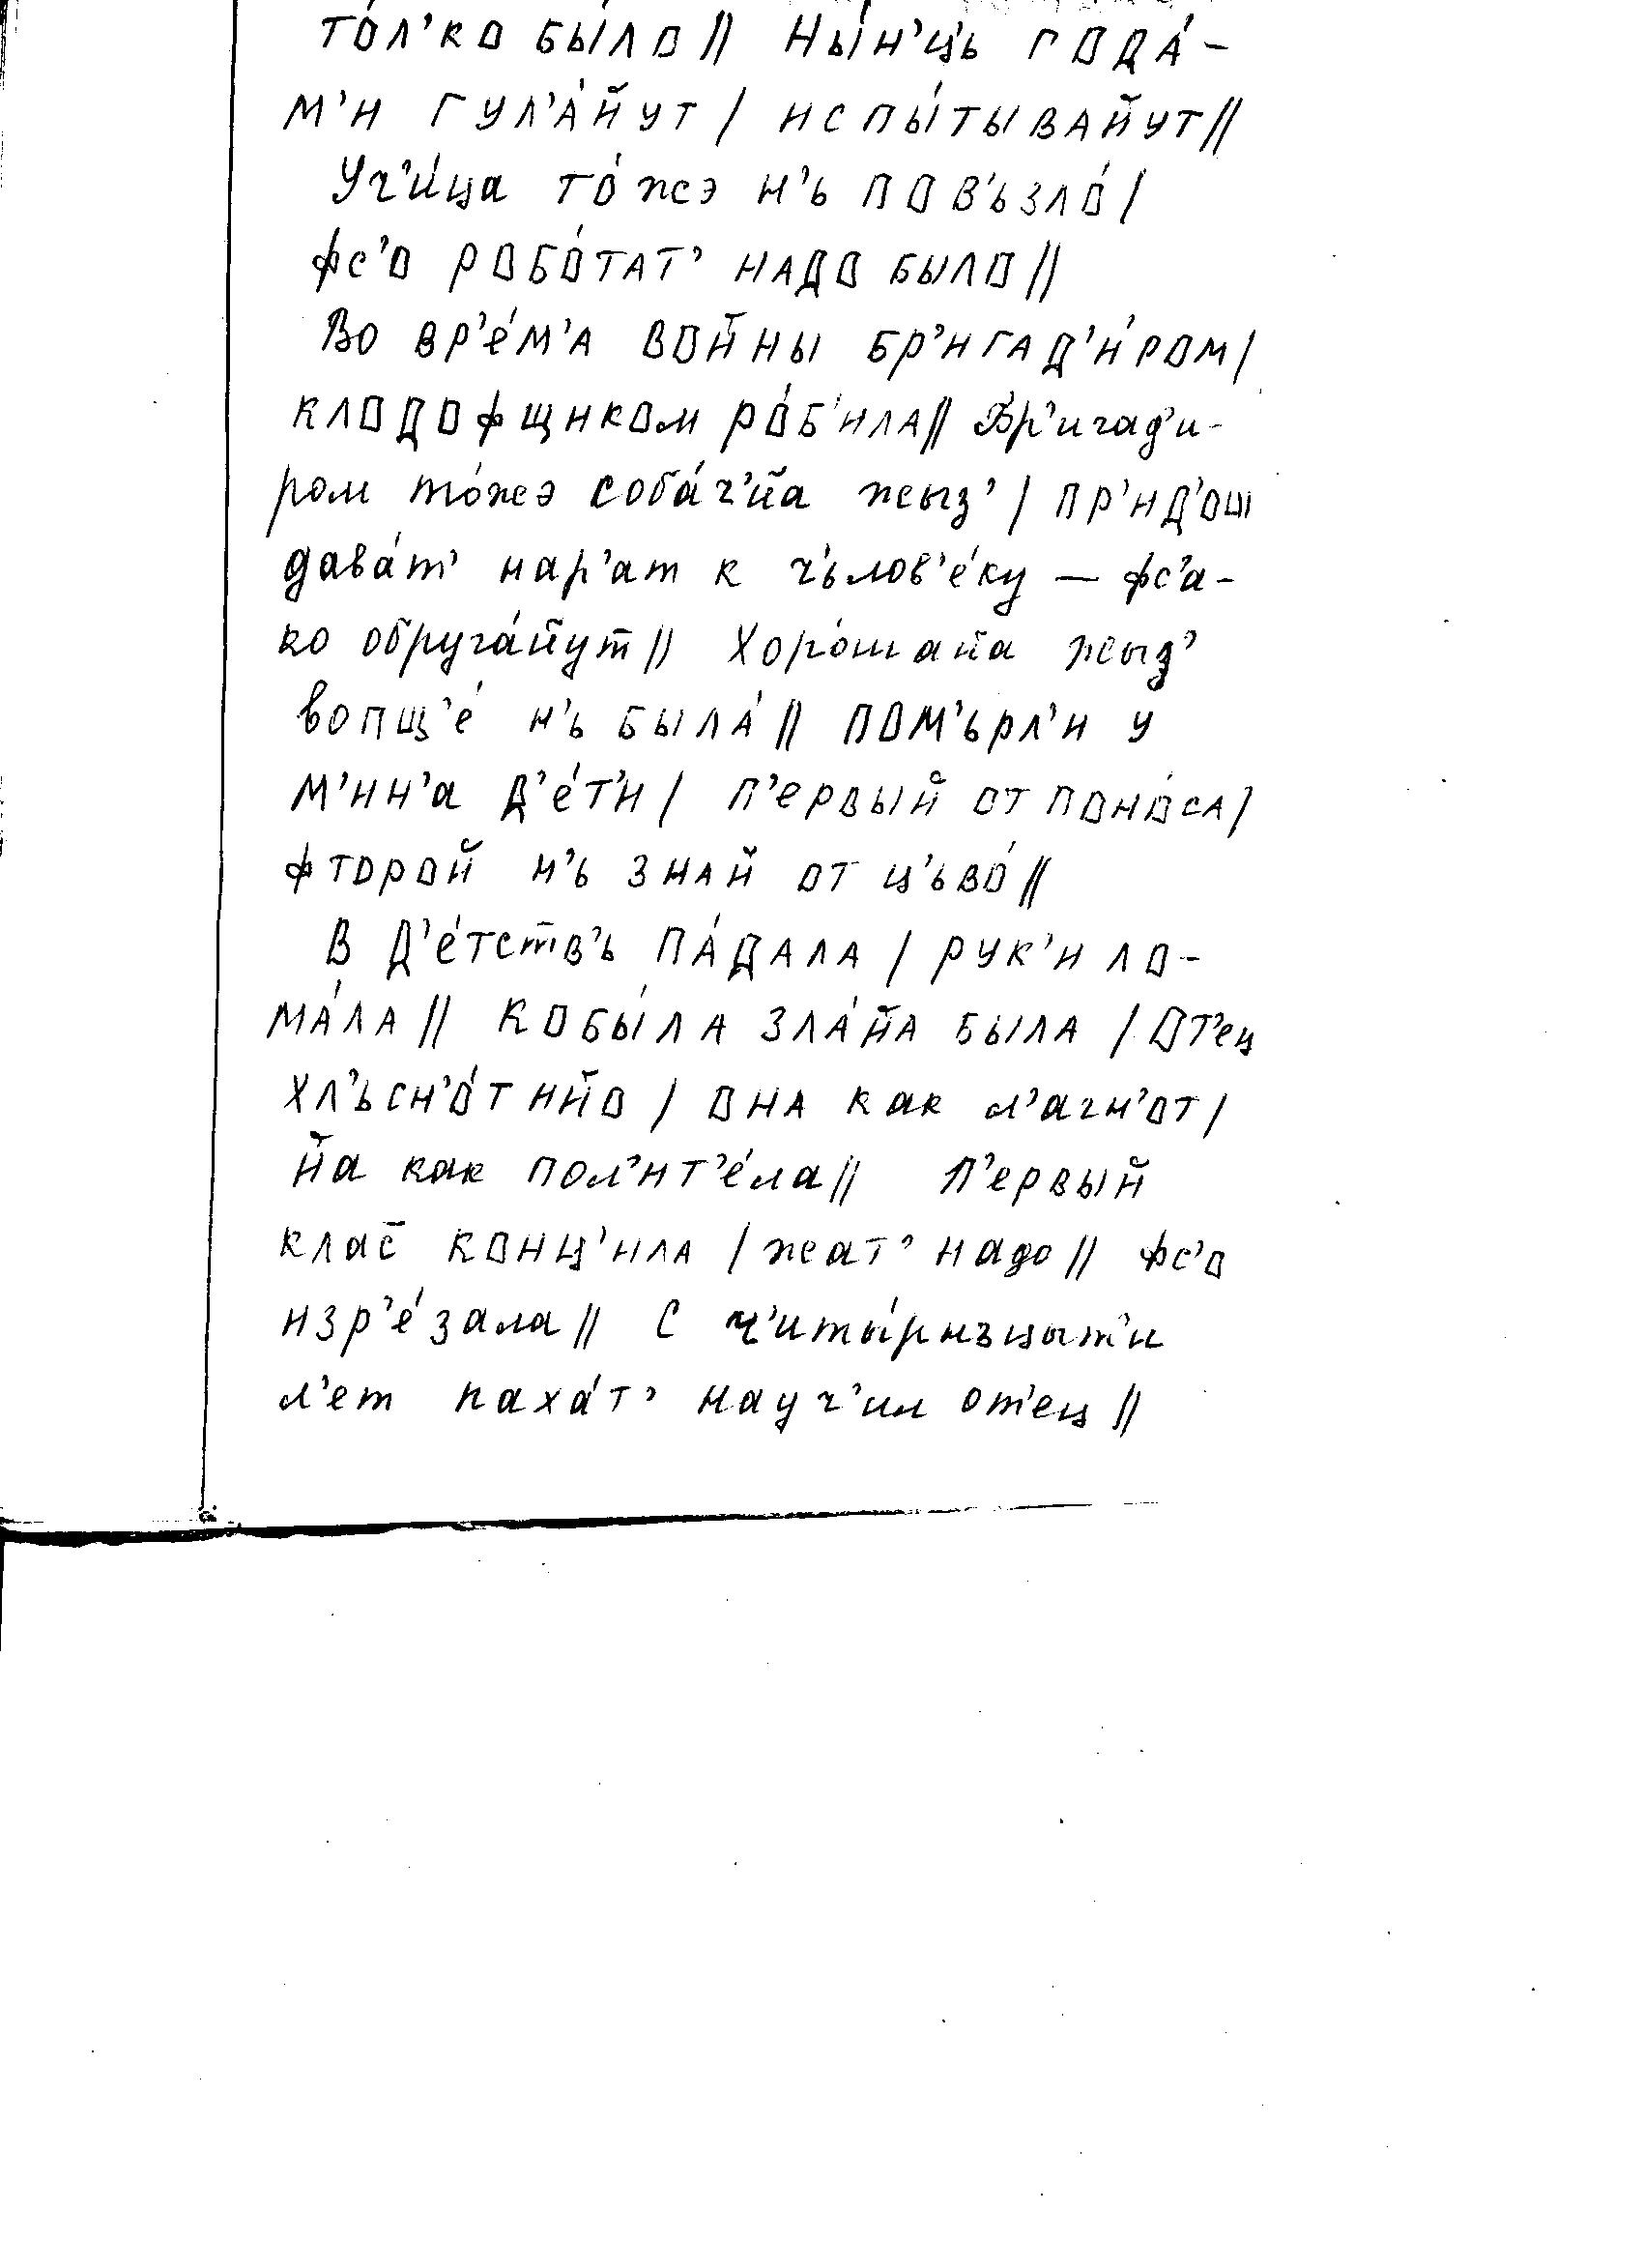 то́л’ко бы́ло // Ны́н’ц’ь года́-
м’и гул’а́йут / испы́тывайут //
Уч’и́ца то́жэ н’ь пов’ьзло́ /
фс’о робо́тат’ надо было //
Во вр’е́м’а войны бр’игад’и́ром /
клодофщиком ро́б’ила // Бр’игад’и-
ром то́жэ соба́ч’йа жыз’ / пр’ид’ош
дава́т’ нар’ат к ч’ьлов’е́ку — фс’а-
ко обруга́йут // Хоро́шайа жыз’
вопщ’е́ н’ь была́ // пом’ьрл’и у
м’ин’а д’е́т’и / п’ервый от поно́са /
фторой н’ь знай от ц’ьво́ //
В д’е́тств’ь па́дала / рук’и ло-
ма́ла // Кобы́ла зла́йа была / От’ец
хл’ьсн’о́т ийо / она как л’агн’от /
йа как пол’ит’е́ла // П’ервый
клас̄ конц’ила / жат’ надо // фс’о
изр’е́зала // С ч’иты́рнъцыт’и
л’ет паха́т’ науч’ил от’ец //